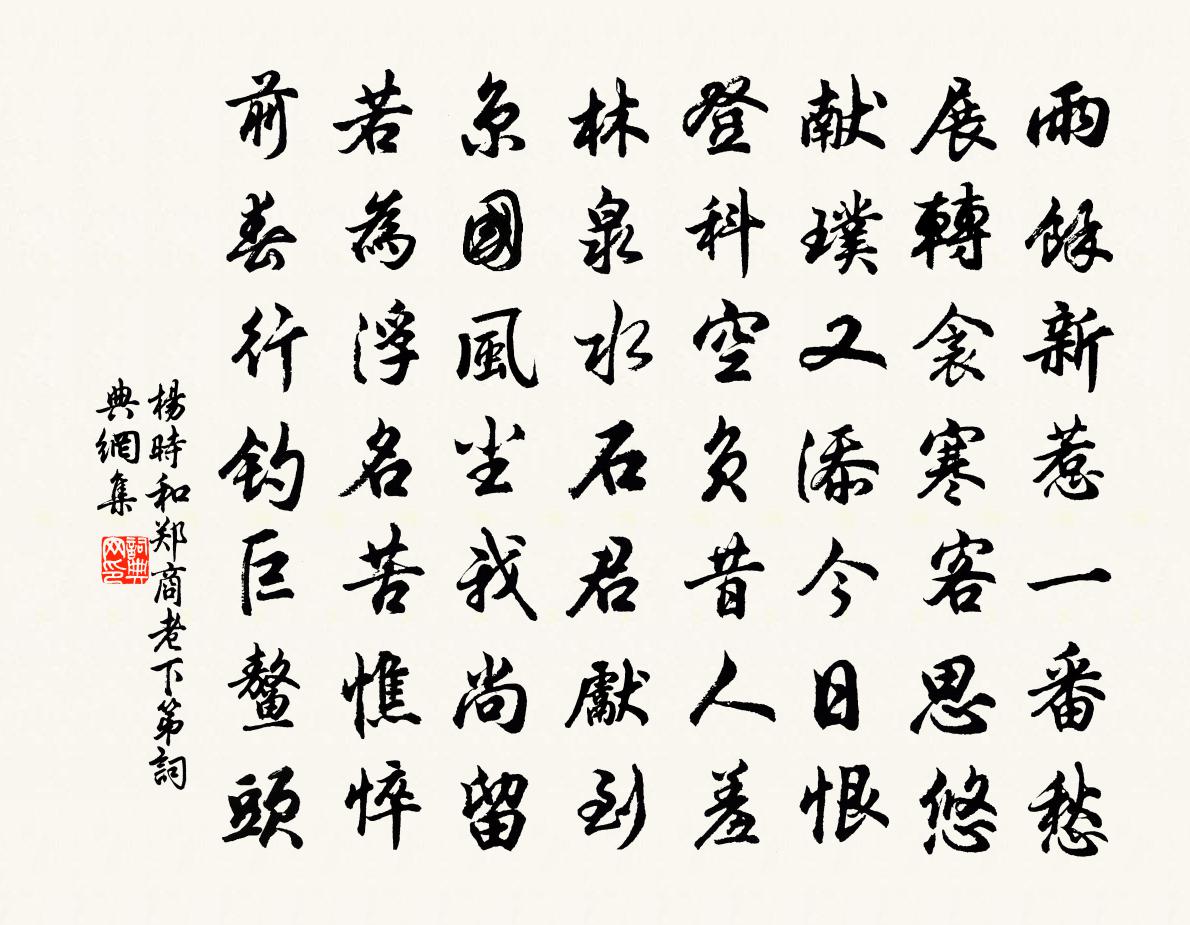 雨餘新惹一番愁
展轉衾寒客思悠
献璞又添今日恨
登科空負昔人羞
林泉水石君獻到
京國風尘我尚留
若為浮名苦憔悴
前春行钓巨鳌頭
楊時和郑商老下第詞
典網集
詞典网印